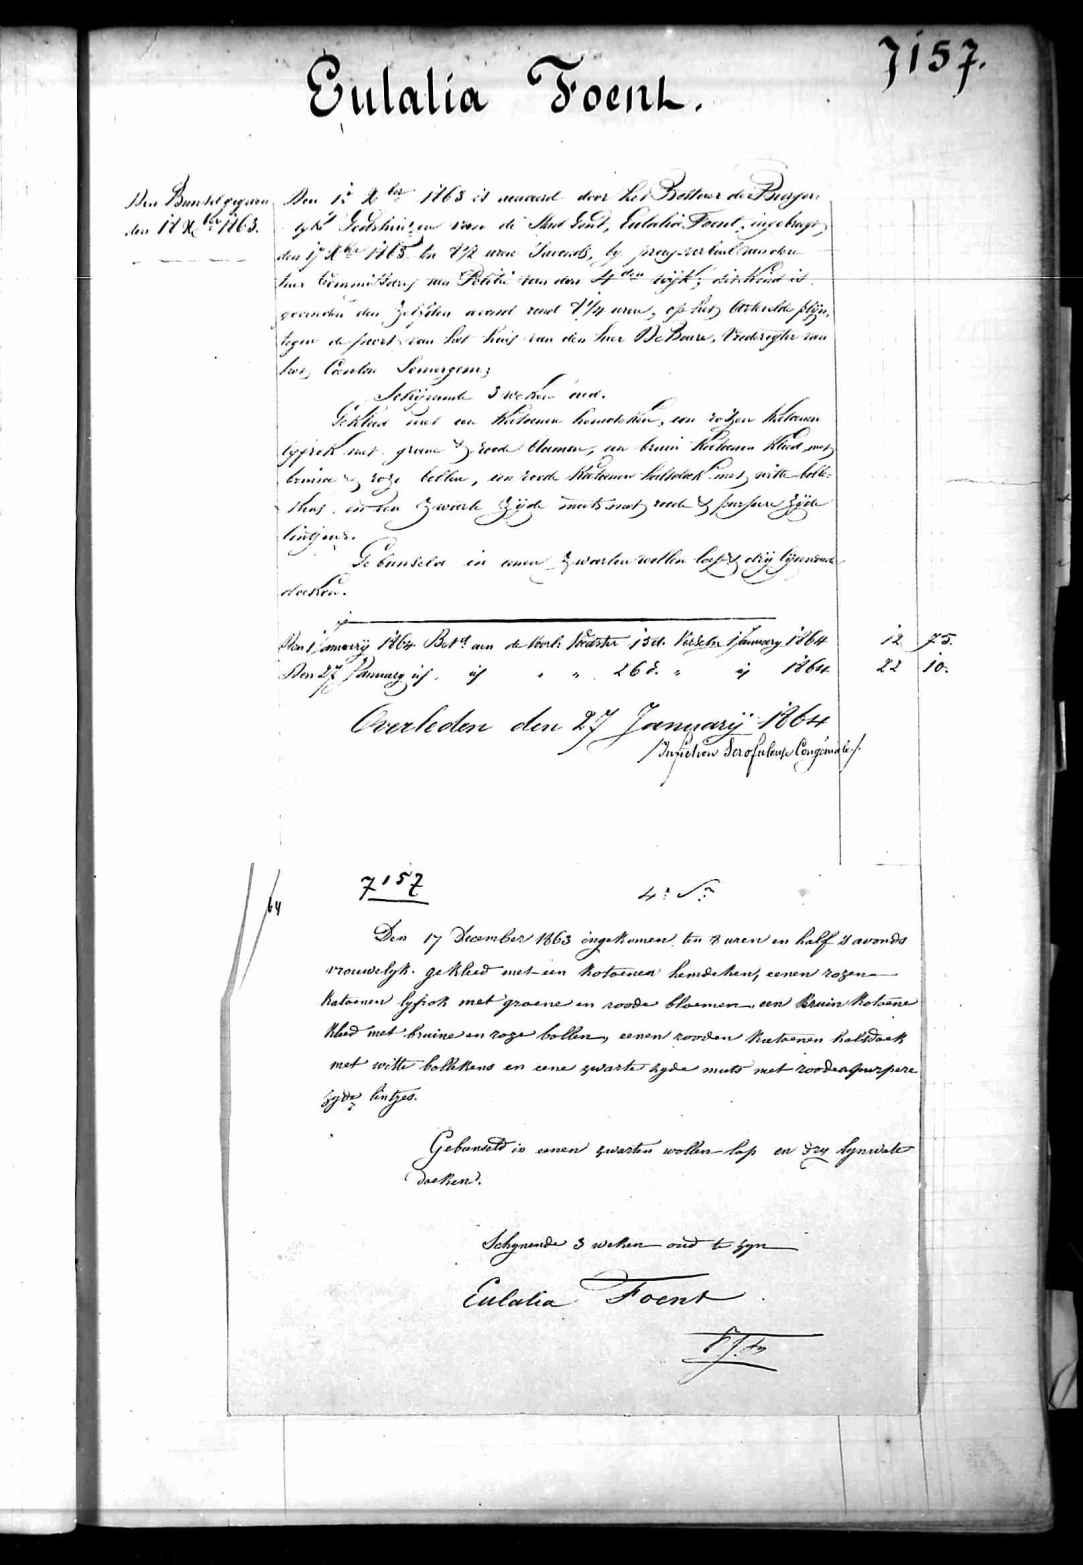 7157.
Eulalia Foent.
Den Bundel gegeven
den 18 Xber 1863.
Den 18 Xber 1863 is aanvaard door het Bestuer der Burger-
lyke Godshuizen van de Stad Gend, Eulalia Foent, ingebragt
den 17 Xber 1863 ten 8 1/2 uren 's avonds, by proces-verbael van den
heer Commissaris van Politie van den 4den wijk; dit kind is
gevonden den zelfden avond rond 8 1/4 uren, op het
tegen de poort van het huis van den heer De Boare, Vrederegter van
het Canton Somergem;
Schijnende 3 weken oud.
Gekleed met een katoenen hemdeken, een rozen katoenen
lyfrok met groene & roode bloemen, een bruin katoenen kleed met
bruine & roze bollen, een roode katoenen halsdoek met witte bolle-
kens en een zwarte zyde muts met roode & purpere zyde
lintjens.
Gebunseld in eenen zwarten wollen lap & dry lynwaede
doeken.
Den 1 January 1864 Bet.d aen de Voedster 15 d. 1 January 1864 12 75.
Den 27 January id. id " " 26 d. " id 1864 22 10.
Overleden den 27 Januarij 1864
/Infection Scrofuleuse Congéniale/.
7157
4e S.n
64
Den 17 December 1863 ingekomen ten 8 uren en half 's avonds
vrouwelyk. gekleed met een katoenen hemdeken, eenen rozen
katoenen lyfrok met groene en roode bloemen, een Bruin katoene
kleed met bruine en roze bollen, eenen rooden katoenen halsdoek
met witte bollekens en eene zwarte zyde muts met roode & purpere
zyde lintjes.
Gebunseld in eenen zwarten wollen lap en dry lynwate
doeken.
Schynende 3 weken oud te zyn
Eulalia Foent